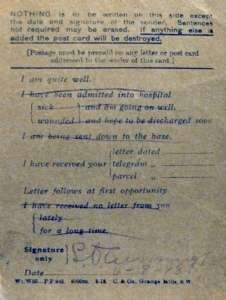 NOTHING is to be written on this side except
the date and signature of the sender. Sentences
not required may be erased. If anything else is
added the post card will be destroyed.
[Postage must be prepaid on any letter or post card
addressed to the sender of this card.]
I am quite well.
I have been admitted into hospital
sick and am going on well.
wounded and hope to be discharged soon
I am being sent down to the base.
letter dated
I have received your telegram „
parcel „
Letter follows at first opportunity.
I have received no letter from you
lately
for a long time.
Signature
only
Date 6-8-18